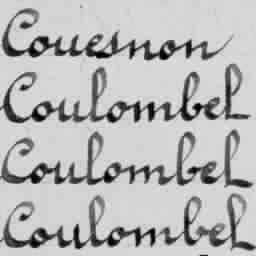 Couesnon
Coulombel
Coulombel
Coulombel